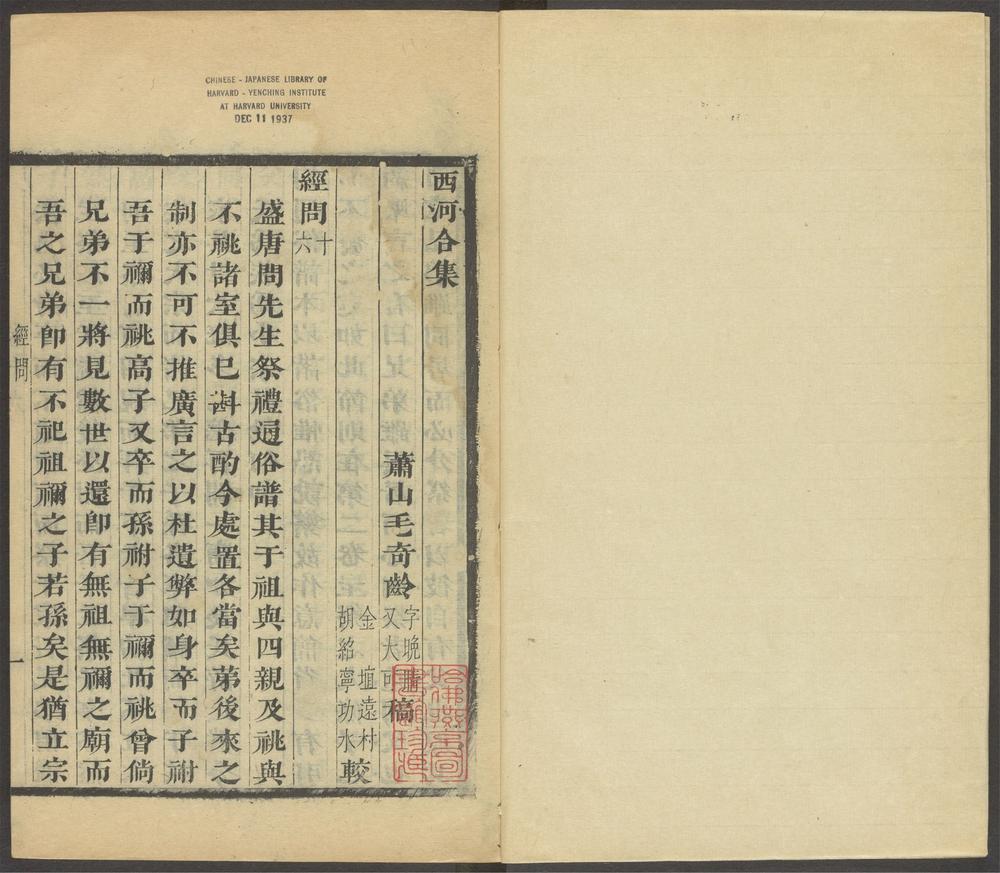 CHINESE - JAPANESE LIBRARY OF
HARVARD - YENCHING INSTITUTE
AT HARVARD UNIVERSITY
DEC 11 1937
西河合集
蕭山毛奇齡字晚晴又大可稿
金埴遠村
胡紹寧功水較
經問十六
盛唐問先生祭禮通俗譜其于祖與四親及祧與
不祧諸室俱巳斟古酌今處置各當矣苐後來之
制亦不可不推廣言之以杜遺弊如身卒而子祔
吾于禰而祧高子又卒而孫祔子于禰而祧曾倘
兄弟不一將見數世以還卽有無祖無禰之廟而
吾之兄弟卽有不祀祖禰之子若孫矣是猶立宗
經問
一